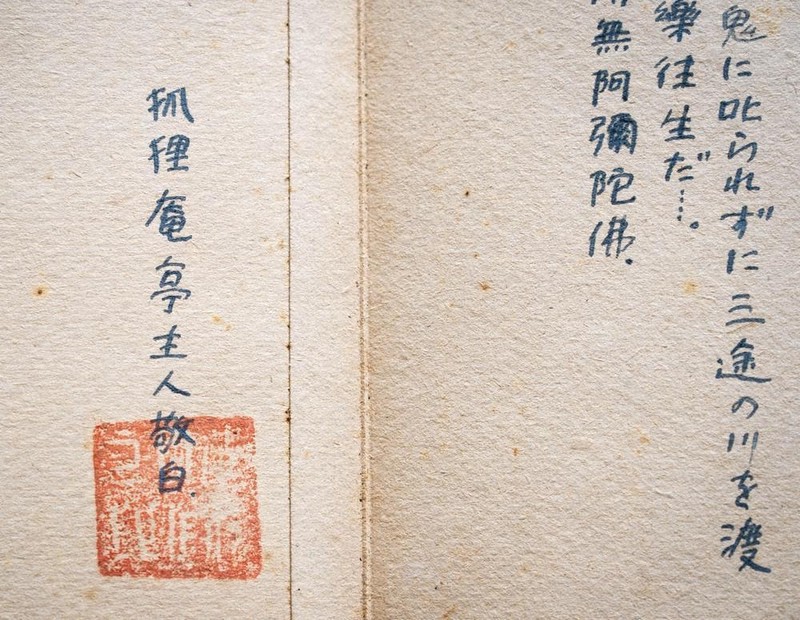 鬼に叱られずに三途の川を渡
樂往生だ…。
無阿彌陀佛.
狐狸庵亭主人敬白.